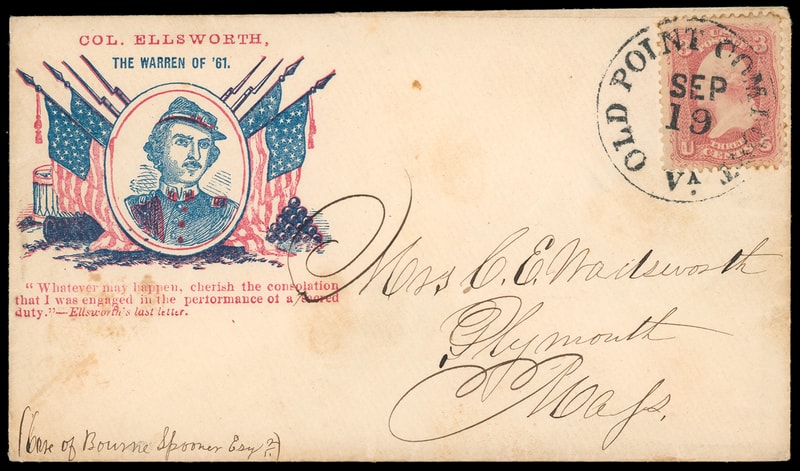 COL. ELLSWORTH,
THE WARREN OF '61.
"Whatever may happen, cherish the consolation
that I was engaged in the performance of a sacred
duty."—Ellsworth's last letter.
OLD POINT COMFORT
SEP
19
VA.
U S
THREE
CENTS
3
Mrs C. E. Wadsworth
Plymouth
Mass.
(Care of Bourne Spooner Esqr)